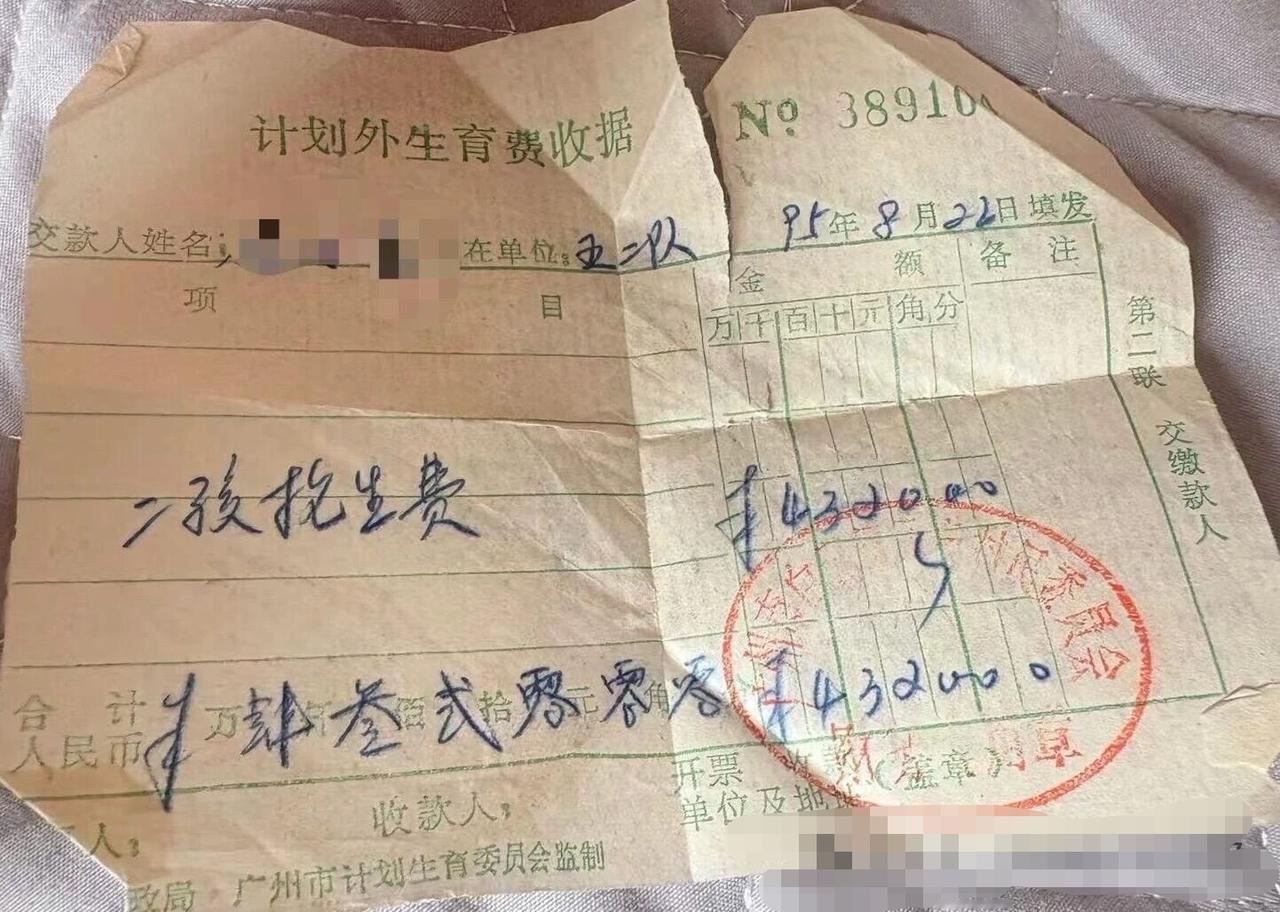 计划外生育费收据
No 38910
交款人姓名: 在单位: 五二队 95年8月22日填发
项 目 金 额 备 注
万 千 百 十 元 角 分
第二联 交缴款人
二孩抢生费 ¥432000
合计人民币 ¥ 万 肆 叁 佰 弍 拾 零 元 零 角 零 ¥432000
开票 收款 (盖章)
单位及地址
人: 收款人:
政局 广州市计划生育委员会监制
村民委员会